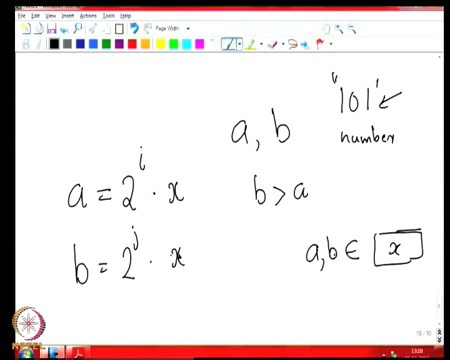 File Edit View Insert Actions Tools Help
Page Width
"101"
a, b
number
a = 2^i · x
b > a
b = 2^j · x
a,b ∈ x
NPTEL